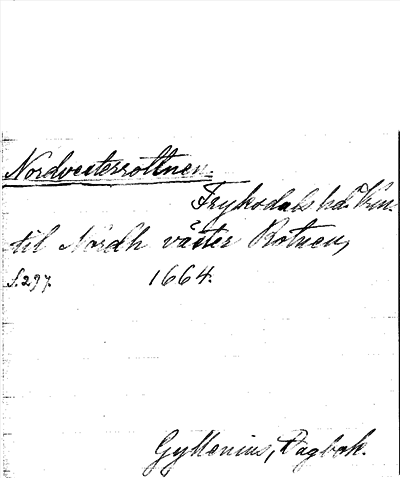 Nordvesterrottnen.
Fryksdals hd. Vrm.
til Nordh väster Rotnen,
S. 297. 1664.
Gyllenius, Dagbok.